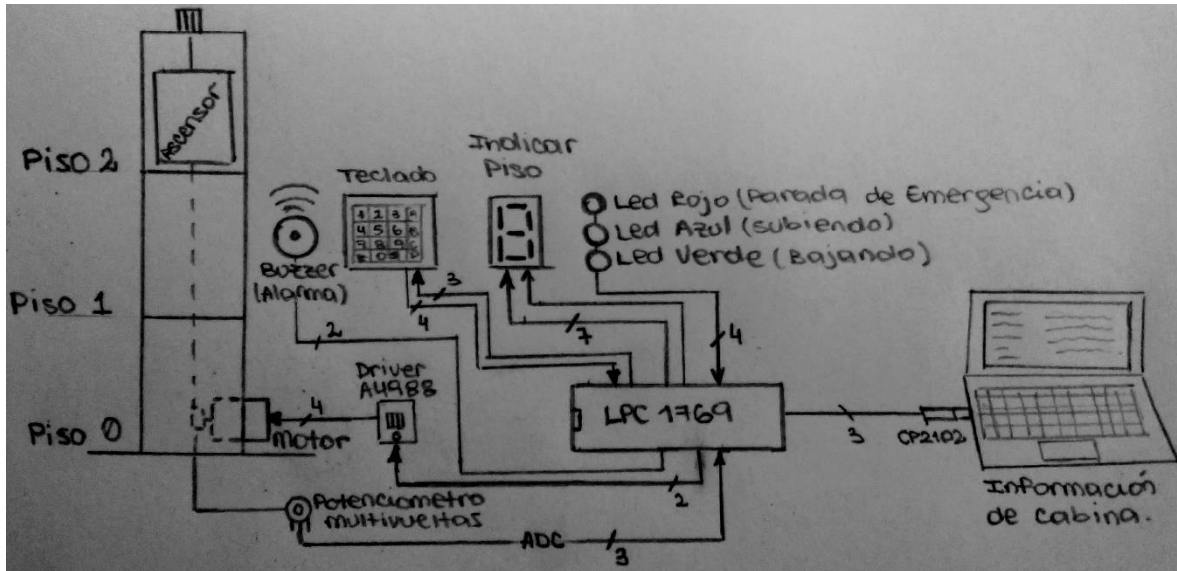 Ascensor
Piso 2
Piso 1
Piso 0
Buzzer
(Alarma)
2
Teclado
1 2 3 A
4 5 6 B
7 8 9 C
0
D
3
4
Indicar
Piso
7
Led Rojo (Parada de Emergencia)
Led Azul (subiendo)
Led Verde (Bajando)
4
Driver
A4988
4
Motor
LPC 1769
3
CP2102
2
Potenciometro
multivueltas
ADC
3
Información
de cabina.